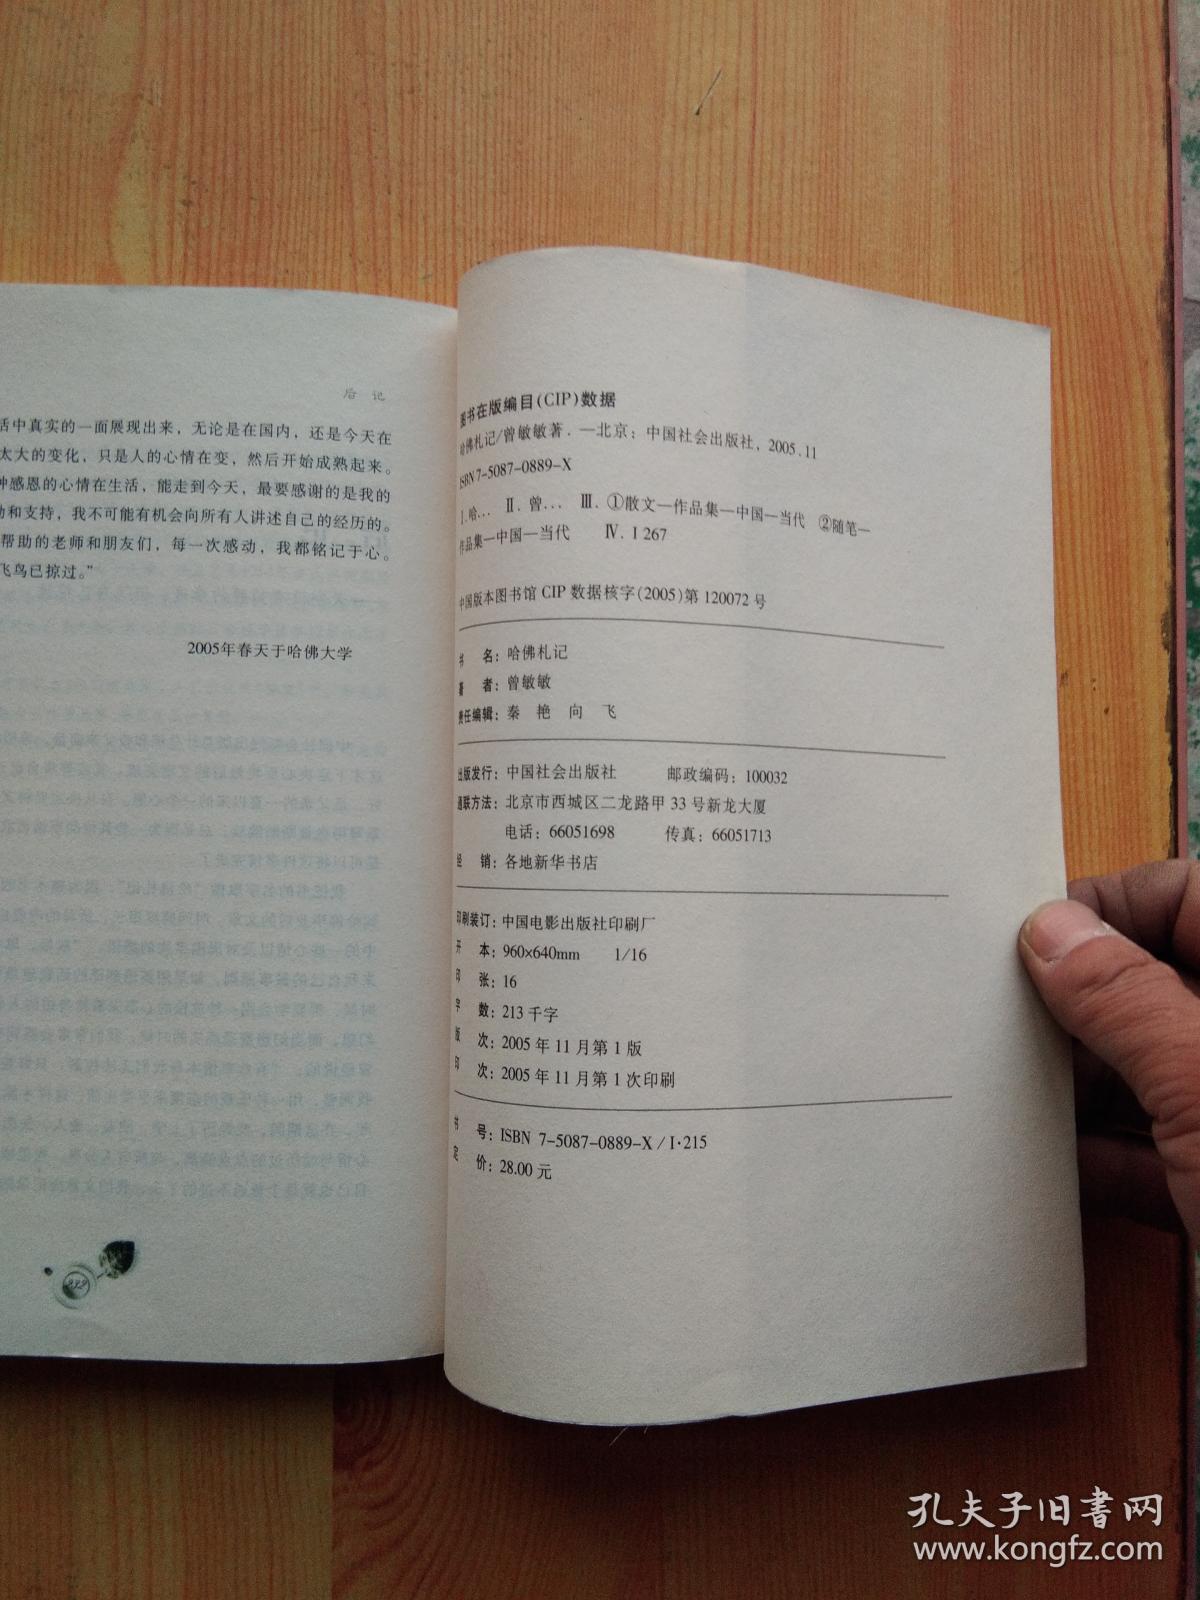 后 记
活中真实的一面展现出来，无论是在国内，还是今天在
太大的变化，只是人的心情在变，然后开始成熟起来。
种感恩的心情在生活，能走到今天，最要感谢的是我的
和支持，我不可能有机会向所有人讲述自己的经历的。
帮助的老师和朋友们，每一次感动，我都铭记于心。
飞鸟已掠过。”
2005年春天于哈佛大学
292
图书在版编目(CIP)数据
哈佛札记/曾敏敏著．—北京：中国社会出版社，2005.11
ISBN 7-5087-0889-X
Ⅰ.哈… Ⅱ.曾… Ⅲ.①散文—作品集—中国—当代 ②随笔—
作品集—中国—当代 Ⅳ.I 267
中国版本图书馆 CIP 数据核字(2005)第 120072 号
书 名：哈佛札记
著 者：曾敏敏
责任编辑：秦 艳 向 飞
出版发行：中国社会出版社 邮政编码：100032
通联方法：北京市西城区二龙路甲 33 号新龙大厦
电话：66051698 传真：66051713
经 销：各地新华书店
印刷装订：中国电影出版社印刷厂
开 本：960×640mm 1/16
印 张：16
字 数：213 千字
版 次：2005 年 11 月第 1 版
印 次：2005 年 11 月第 1 次印刷
书 号：ISBN 7-5087-0889-X/I·215
定 价：28.00 元
孔夫子旧书网
www.kongfz.com